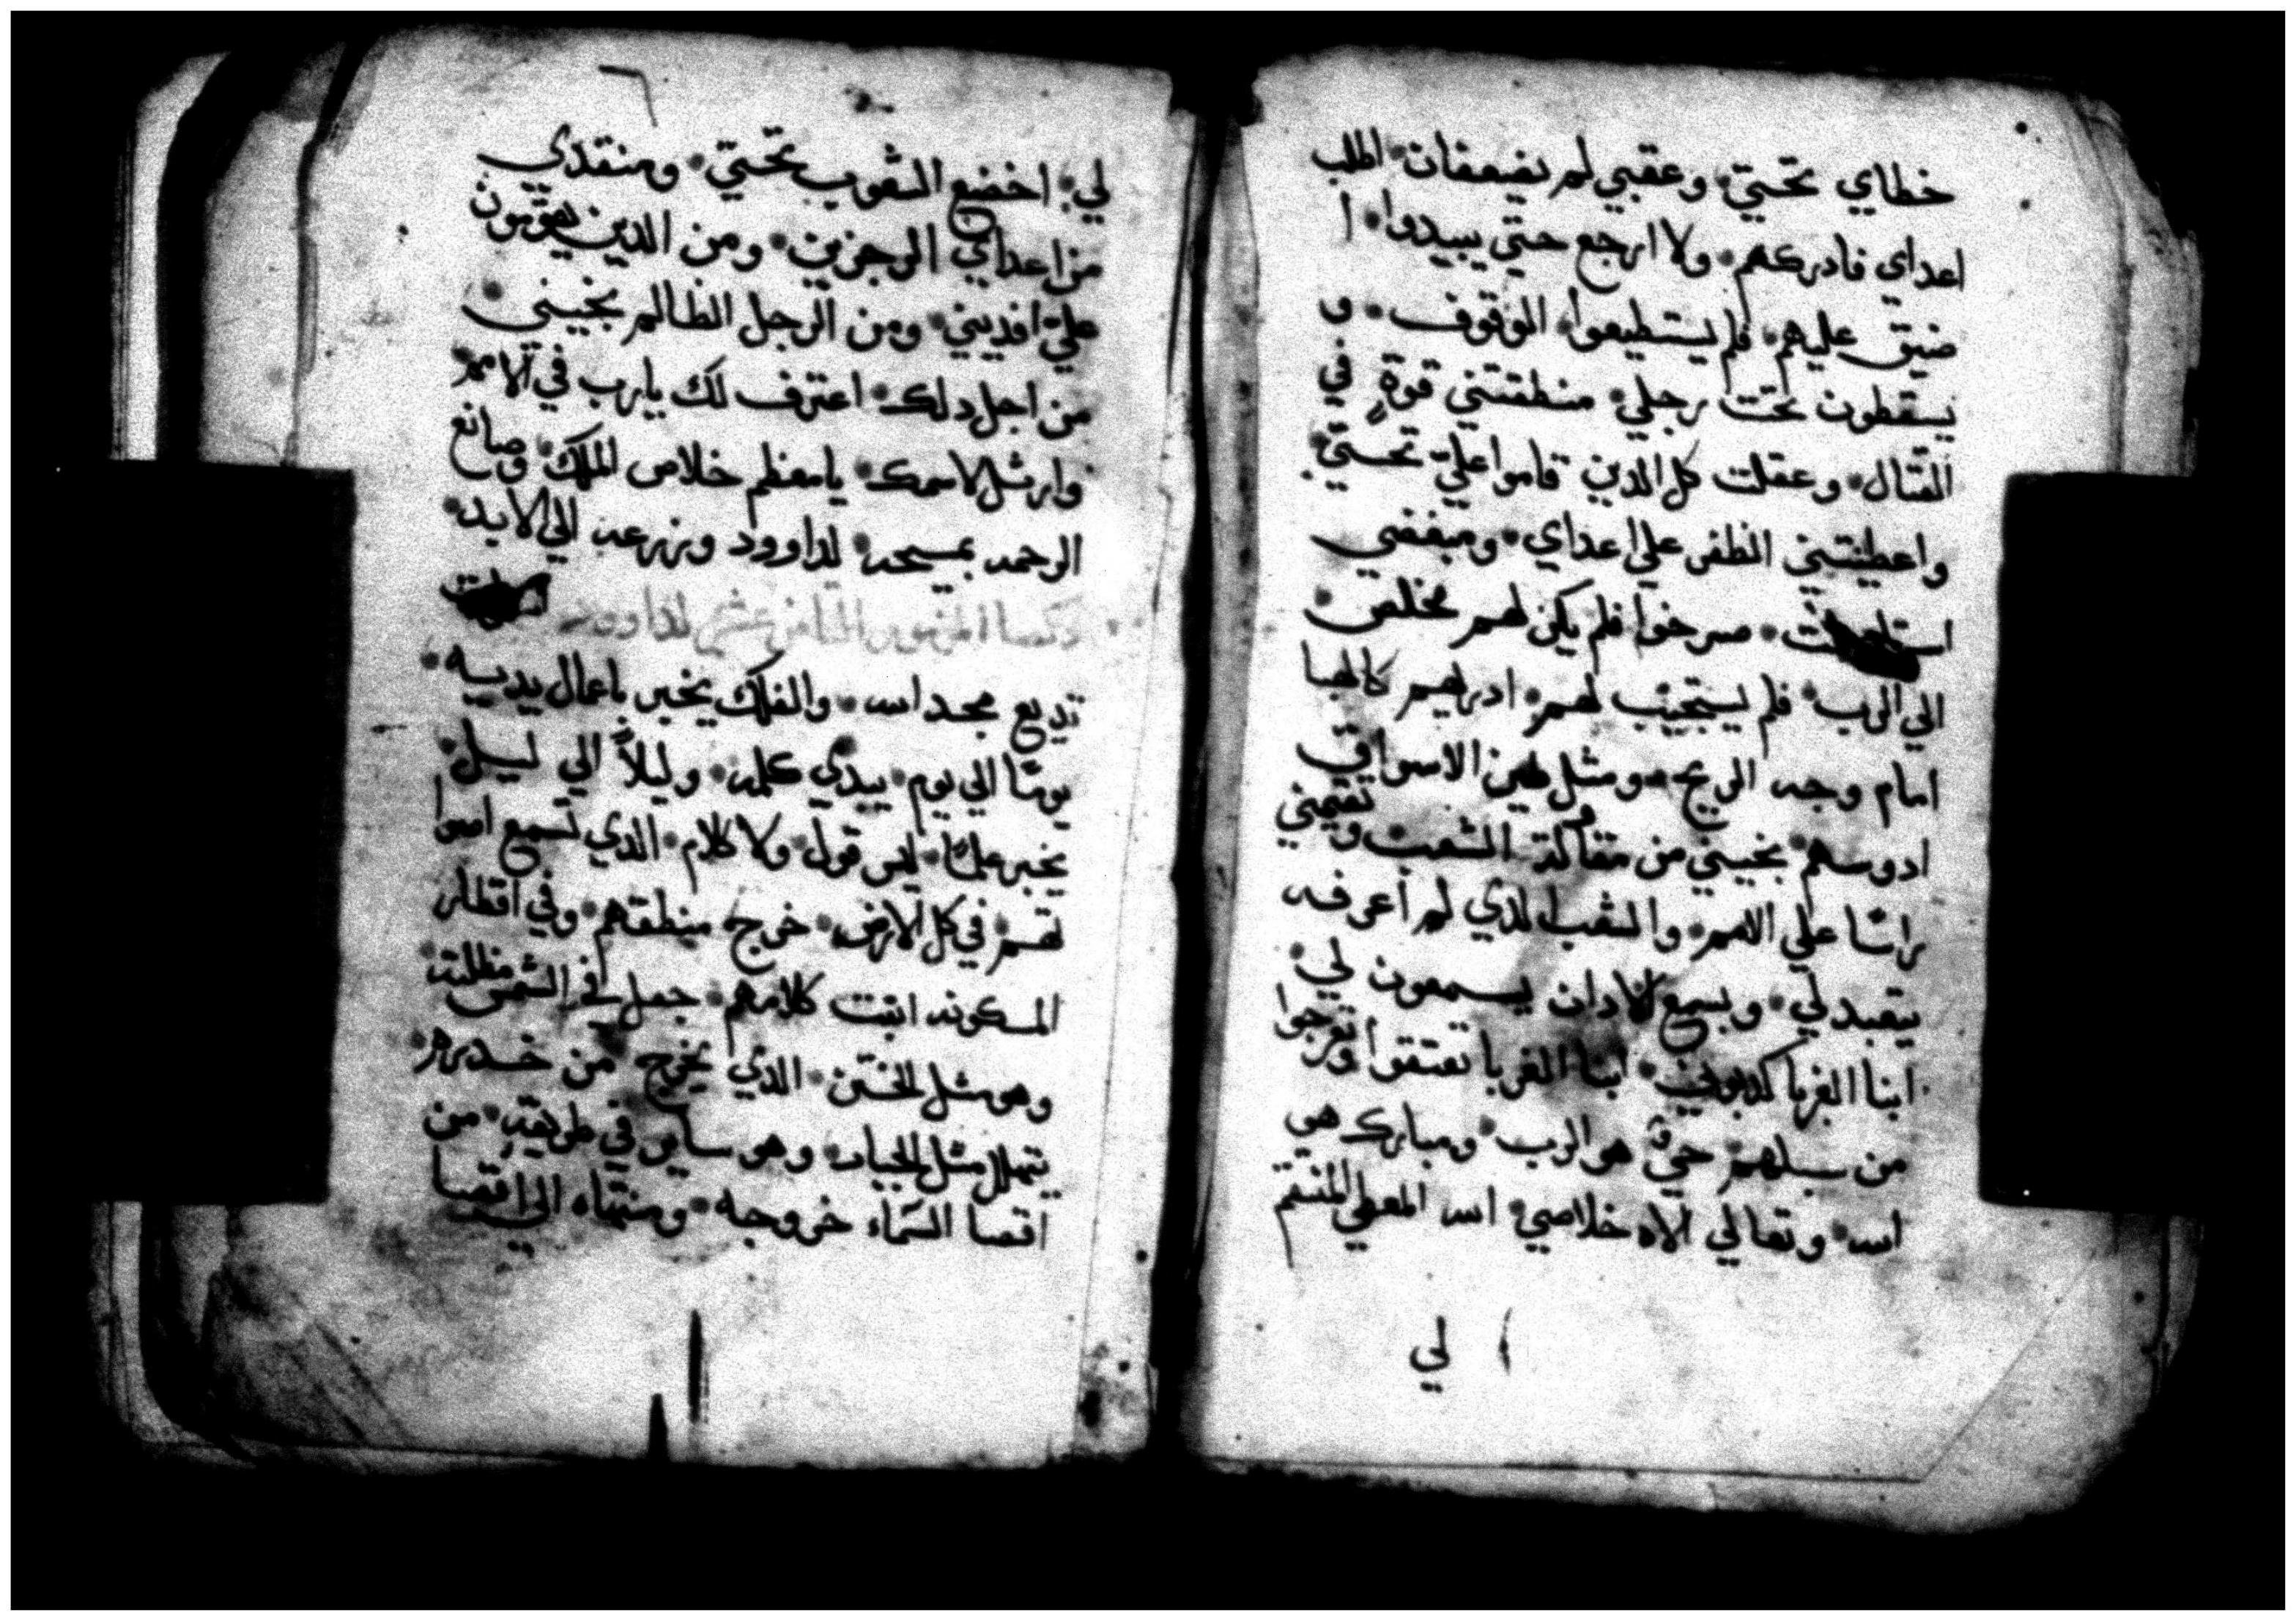 خطاي تحتي وعقبي لم تضعفان اطلب
اعداي فادركهم ولا ارجع حتي يبيدوا ا
ضيق عليهم فلم يستطيعوا الوقوف و
يسقطون تحت رجلي منطقتني قوة في
القتال وعقلت كل الدين قاموا علي تحتي
واعطيتني الظفر علي اعداي ومبغضي
صرخوا فلم يكن لهم مخلص
الي الرب فلم يستجيب لهم ادريهم كالهبا
امام وجه الريح ومثل طين الاسواق
ادوسهم نجيني من مقاومة الشعب وتقيمني
راسا علي الامم والشعب الدي لم اعرفه
يتعبد لي وبسمع الادان يسمعون لي
ابنا الغربا كدبوني ابنا الغربا تعتقوا وتعرجوا
من سبلهم حي هو الرب ومبارك هو
اسه وتعالي الاه خلاصي اسه المعطي المنتقم
لي
لي اخضع الشعوب تحتي ومنقدي
من اعداي الرجزين ومن الدين يقومون
علي افديني ومن الرجل الظالم نجيني
من اجل دلك اعترف لك يارب في الامم
وارتل لاسمك يا معظم خلاص الملك وصانع
الرحمه بمسيحه لداوود وزرعه الي الابد
المزمور الثامن عشر لداوود
تديع مجد اسه والفلك يخبر باعمال يديه
يوما الي يوم يبدي كلمه وليلا الي ليل
يخبر علما ليس قول ولا كلام الدي تسمع اصوا
تهم في كل الارض خرج منطقهم وفي اقطار
المسكونه انبت كلامهم جعل في الشمس مظلته
وهو مثل الختن الدي يخرج من خدره
يتهلل مثل الجبار وهو ساير في طريقه من
اقصا السماء خروجه ومنتهاه الي اقصا